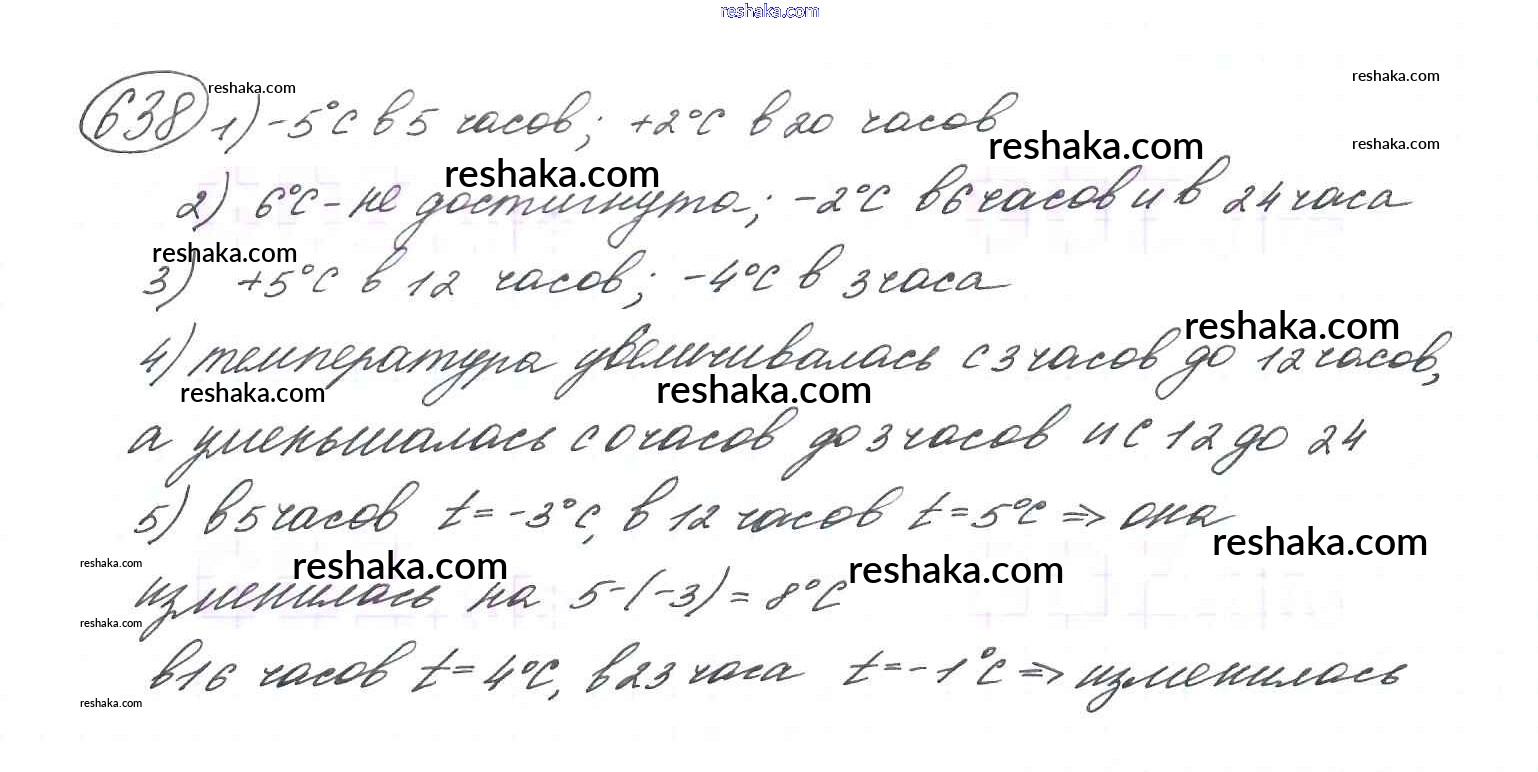 reshaka.com
reshaka.com
reshaka.com
638 1) -5°C в 5 часов; +2°C в 20 часов
reshaka.com
reshaka.com
reshaka.com
2) 6°C - не достигнута; -2°C в 6 часов и в 24 часа
reshaka.com
3) +5°C в 12 часов; -4°C в 3 часа
reshaka.com
4) температура увеличивалась с 3 часов до 12 часов,
reshaka.com
reshaka.com
а уменьшалась с 0 часов до 3 часов и с 12 до 24
5) в 5 часов t = -3°C, в 12 часов t = 5°C ⇒ она
reshaka.com
reshaka.com
reshaka.com
reshaka.com
изменилась на 5-(-3) = 8°C
reshaka.com
в 16 часов t = 4°C, в 23 часа t = -1°C ⇒ изменилась
reshaka.com